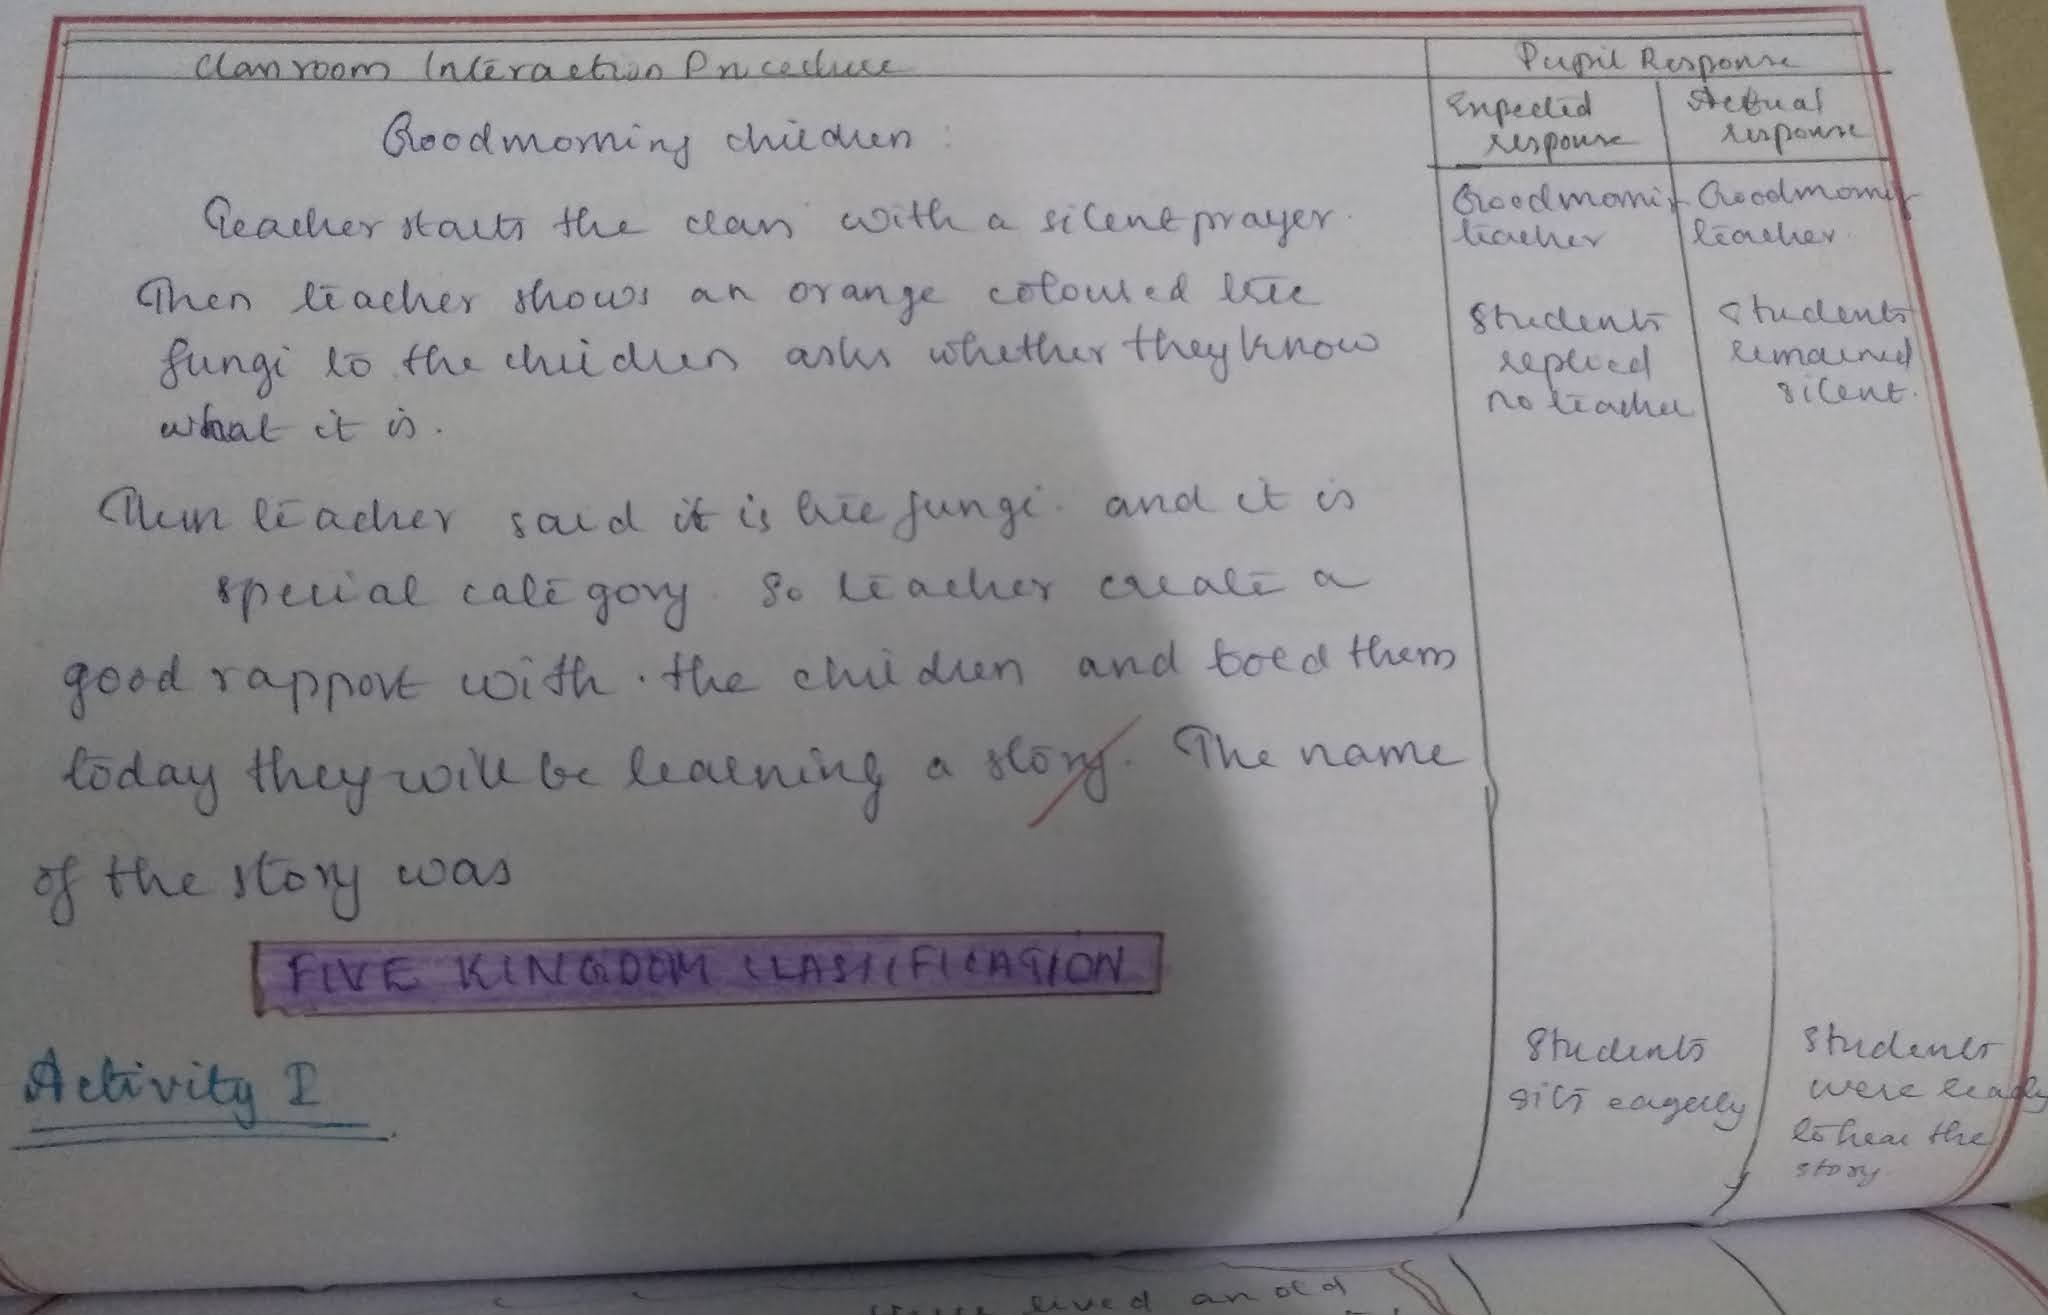 Classroom Interaction Procedure
Pupil Response
Expected
response
Actual
response
Goodmorning children:
Goodmornig
teacher
Goodmorning
teacher.
Teacher starts the class with a silent prayer.
Then teacher shows an orange coloured tree
fungi to the children asks whether they know
what it is.
Students
replied
no teacher
Students
remained
silent.
Then teacher said it is tree fungi. and it is
special category. So teacher create a
good rapport with the children and told them
today they will be learning a story. The name
of the story was
FIVE KINGDOM CLASSIFICATION
Activity I
Students
sits eagerly
Students
were ready
to hear the
story
lived an old